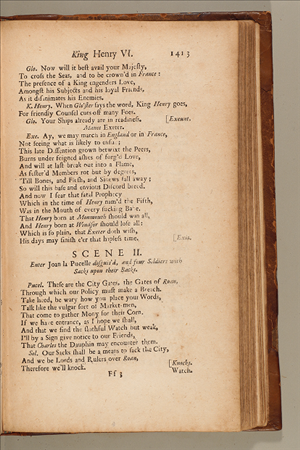 King Henry VI. 1413
Glo. Now will it best avail your Majesty,
To cross the Seas, and to be crown'd in France:
The presence of a King engenders Love,
Amongst his Subjects and his loyal Friends,
As it disanimates his Enemies.
K. Henry. When Glo'ster says the word, King Henry goes,
For friendly Counsel cuts off many Foes.
Glo. Your Ships already are in readiness. [Exeunt.
Manet Exeter.
Exe. Ay, we may march in England or in France,
Not seeing what is likely to ensue;
This late Dissention grown betwixt the Peers,
Burns under feigned ashes of forg'd Love,
And will at last break out into a Flame,
As fester'd Members rot but by degrees,
'Till Bones, and Flesh, and Sinews fall away;
So will this base and envious Discord breed.
And now I fear that fatal Prophecy
Which in the time of Henry nam'd the Fifth,
Was in the Mouth of every sucking Babe,
That Henry born at Monmouth should win all,
And Henry born at Windsor should lose all:
Which is so plain, that Exeter doth wish,
His days may finish e'er that hapless time. [Exit.
SCENE II.
Enter Joan la Pucelle disguis'd, and four Soldiers with
Sacks upon their Backs.
Pucel. These are the City Gates, the Gates of Roan,
Through which our Policy must make a Breach.
Take heed, be wary how you place your Words,
Talk like the vulgar sort of Market-men,
That come to gather Mony for their Corn.
If we have entrance, as I hope we shall,
And that we find the slothful Watch but weak,
I'll by a Sign give notice to our Friends,
That Charles the Dauphin may encounter them.
Sol. Our Sacks shall be a means to sack the City,
And we be Lords and Rulers over Roan,
Therefore we'll knock. [Knocks.
Ff 3 Watch.